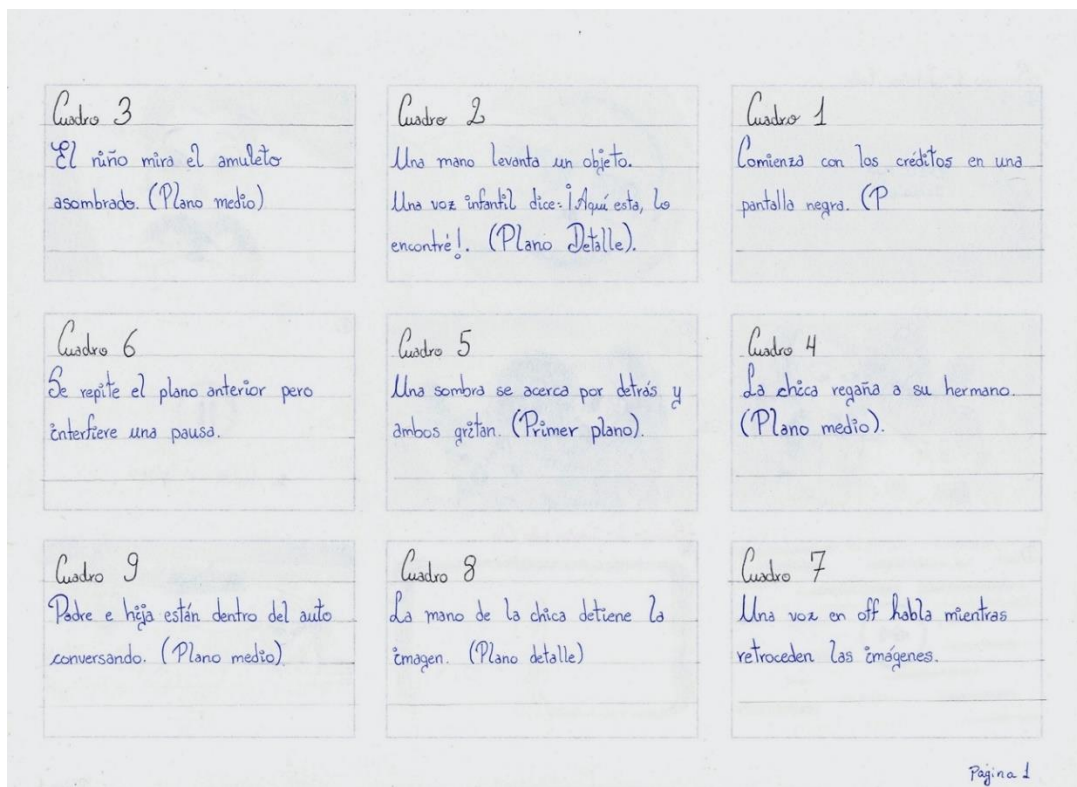 Cuadro 3
El niño mira el amuleto
asombrado. (Plano medio)
Cuadro 2
Una mano levanta un objeto.
Una voz infantil dice: ¡Aquí esta, lo
encontré!. (Plano Detalle).
Cuadro 1
Comienza con los créditos en una
pantalla negra. (P
Cuadro 6
Se repite el plano anterior pero
interfiere una pausa.
Cuadro 5
Una sombra se acerca por detrás y
ambos gritan. (Primer plano).
Cuadro 4
La chica regaña a su hermano.
(Plano medio).
Cuadro 9
Padre e hija están dentro del auto
conversando. (Plano medio)
Cuadro 8
La mano de la chica detiene la
imagen. (Plano detalle)
Cuadro 7
Una voz en off habla mientras
retroceden las imágenes.
Pagina 1